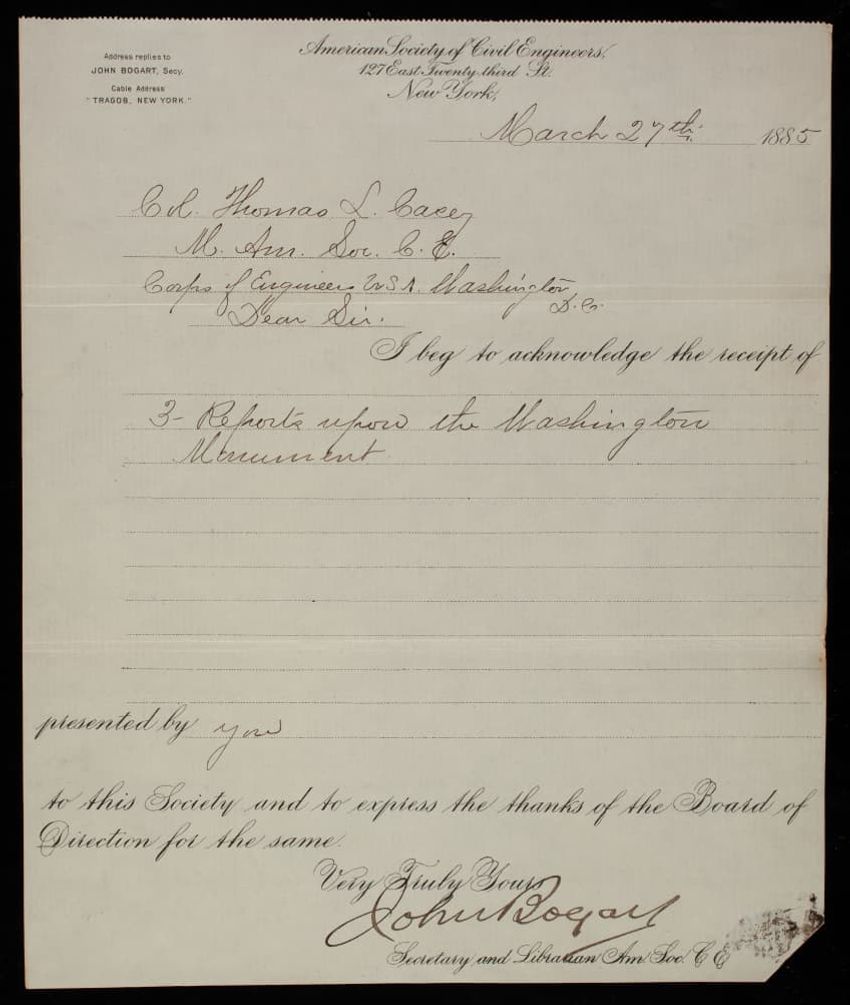 Address replies to
JOHN BOGART, Secy.
Cable Address
"TRAGOB, NEW YORK."
American Society of Civil Engineers,
127 East Twenty-third St.
New York,
March 27th. 1885
Col. Thomas L. Casey
M. Am. Soc. C. E.
Corps of Engineers U.S.A. Washington
D.C.
Dear Sir.
I beg to acknowledge the receipt of
3- Reports upon the Washington
Monument
presented by you
to this Society and to express the thanks of the Board of
Direction for the same.
Very Truly Yours
John Bogart
Secretary and Librarian Am. Soc. C E